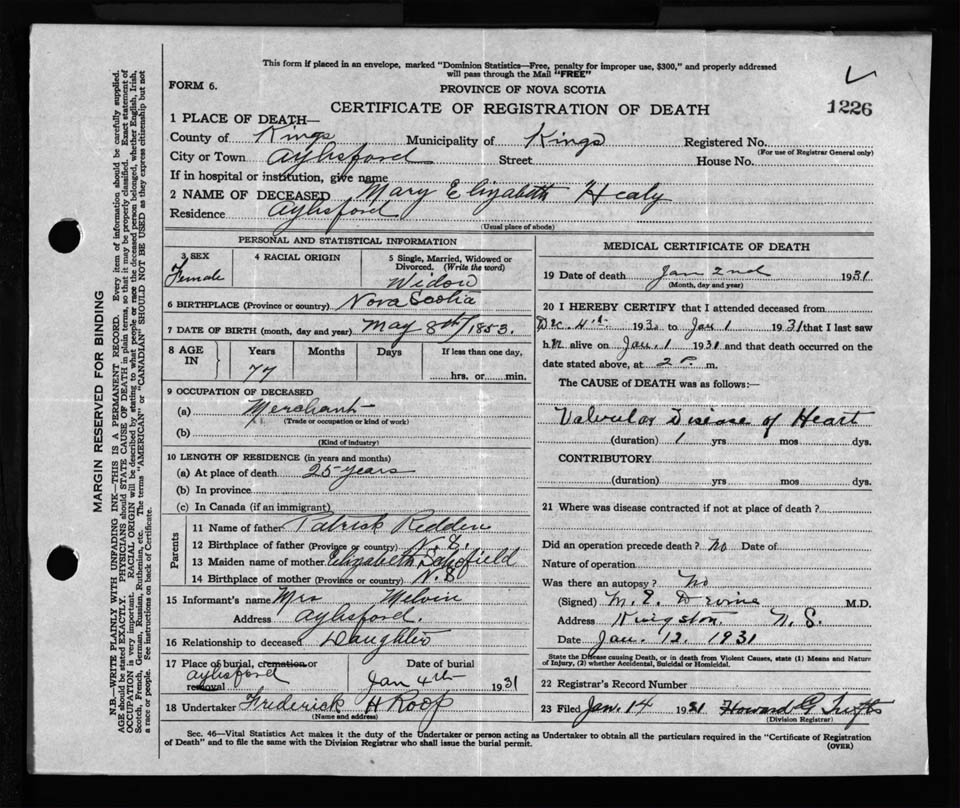 This form if placed in an envelope, marked "Dominion Statistics—Free, penalty for improper use, $300," and properly addressed
will pass through the Mail "FREE"
FORM 6.
PROVINCE OF NOVA SCOTIA
CERTIFICATE OF REGISTRATION OF DEATH
1226
1 PLACE OF DEATH—
County of Kings Municipality of Kings Registered No.
(For use of Registrar General only)
City or Town Aylesford Street House No.
If in hospital or institution, give name
2 NAME OF DECEASED Mary Elizabeth Healy
Residence Aylesford
(Usual place of abode)
PERSONAL AND STATISTICAL INFORMATION
3 SEX
Female
4 RACIAL ORIGIN
5 Single, Married, Widowed or
Divorced. (Write the word)
Widow
6 BIRTHPLACE (Province or country) Nova Scotia
7 DATE OF BIRTH (month, day and year) May 8th/1853.
8 AGE IN
Years Months Days If less than one day,
77 hrs. or min.
9 OCCUPATION OF DECEASED
(a) Merchant
(Trade or occupation or kind of work)
(b)
(Kind of industry)
10 LENGTH OF RESIDENCE (in years and months)
(a) At place of death 25 years
(b) In province
(c) In Canada (if an immigrant)
Parents
11 Name of father Patrick Redden
12 Birthplace of father (Province or country) N.S.
13 Maiden name of mother Elizabeth Schofield
14 Birthplace of mother (Province or country) N.S
15 Informant's name Mrs Melvin
Address Aylesford.
16 Relationship to deceased Daughter
17 Place of burial, cremation or
removal
Aylesford
Date of burial
Jan 4th 1931
18 Undertaker Frederick H Roop
(Name and address)
MEDICAL CERTIFICATE OF DEATH
19 Date of death Jan 2nd 1931
(Month, day and year)
20 I HEREBY CERTIFY that I attended deceased from
Dec. 4th 1930 to Jan 1 1931 that I last saw
her alive on Jan. 1 1931 and that death occurred on the
date stated above, at 2 P. m.
The CAUSE of DEATH was as follows:—
Valvular Disease of Heart
(duration) 1 yrs mos dys.
CONTRIBUTORY
(duration) yrs mos dys.
21 Where was disease contracted if not at place of death?
Did an operation precede death? No Date of
Nature of operation
Was there an autopsy? No
(Signed) M.E. Irvine M.D.
Address Kingston. N.S.
Date Jan. 12. 1931
State the Disease causing Death, or in death from Violent Causes, state (1) Means and Nature
of Injury, (2) whether Accidental, Suicidal or Homicidal.
22 Registrar's Record Number
23 Filed Jan. 14 1931 Howard G
(Division Registrar)
Sec. 46—Vital Statistics Act makes it the duty of the Undertaker or person acting as Undertaker to obtain all the particulars required in the "Certificate of Registration
of Death" and to file the same with the Division Registrar who shall issue the burial permit.
(OVER)
MARGIN RESERVED FOR BINDING
N.B.—WRITE PLAINLY WITH UNFADING INK—THIS IS A PERMANENT RECORD. Every item of information should be carefully supplied.
AGE should be stated EXACTLY. PHYSICIANS should STATE CAUSE OF DEATH in plain terms, so that it may be properly classified. Exact statement of
OCCUPATION is very important. RACIAL ORIGIN will be described by stating to what people or race the deceased person belonged, whether English, Irish,
Scotch, French, German, Russian, Ruthenian, etc. The terms "AMERICAN" or "CANADIAN" SHOULD NOT BE USED as they express citizenship but not
a race or people. See instructions on back of Certificate.